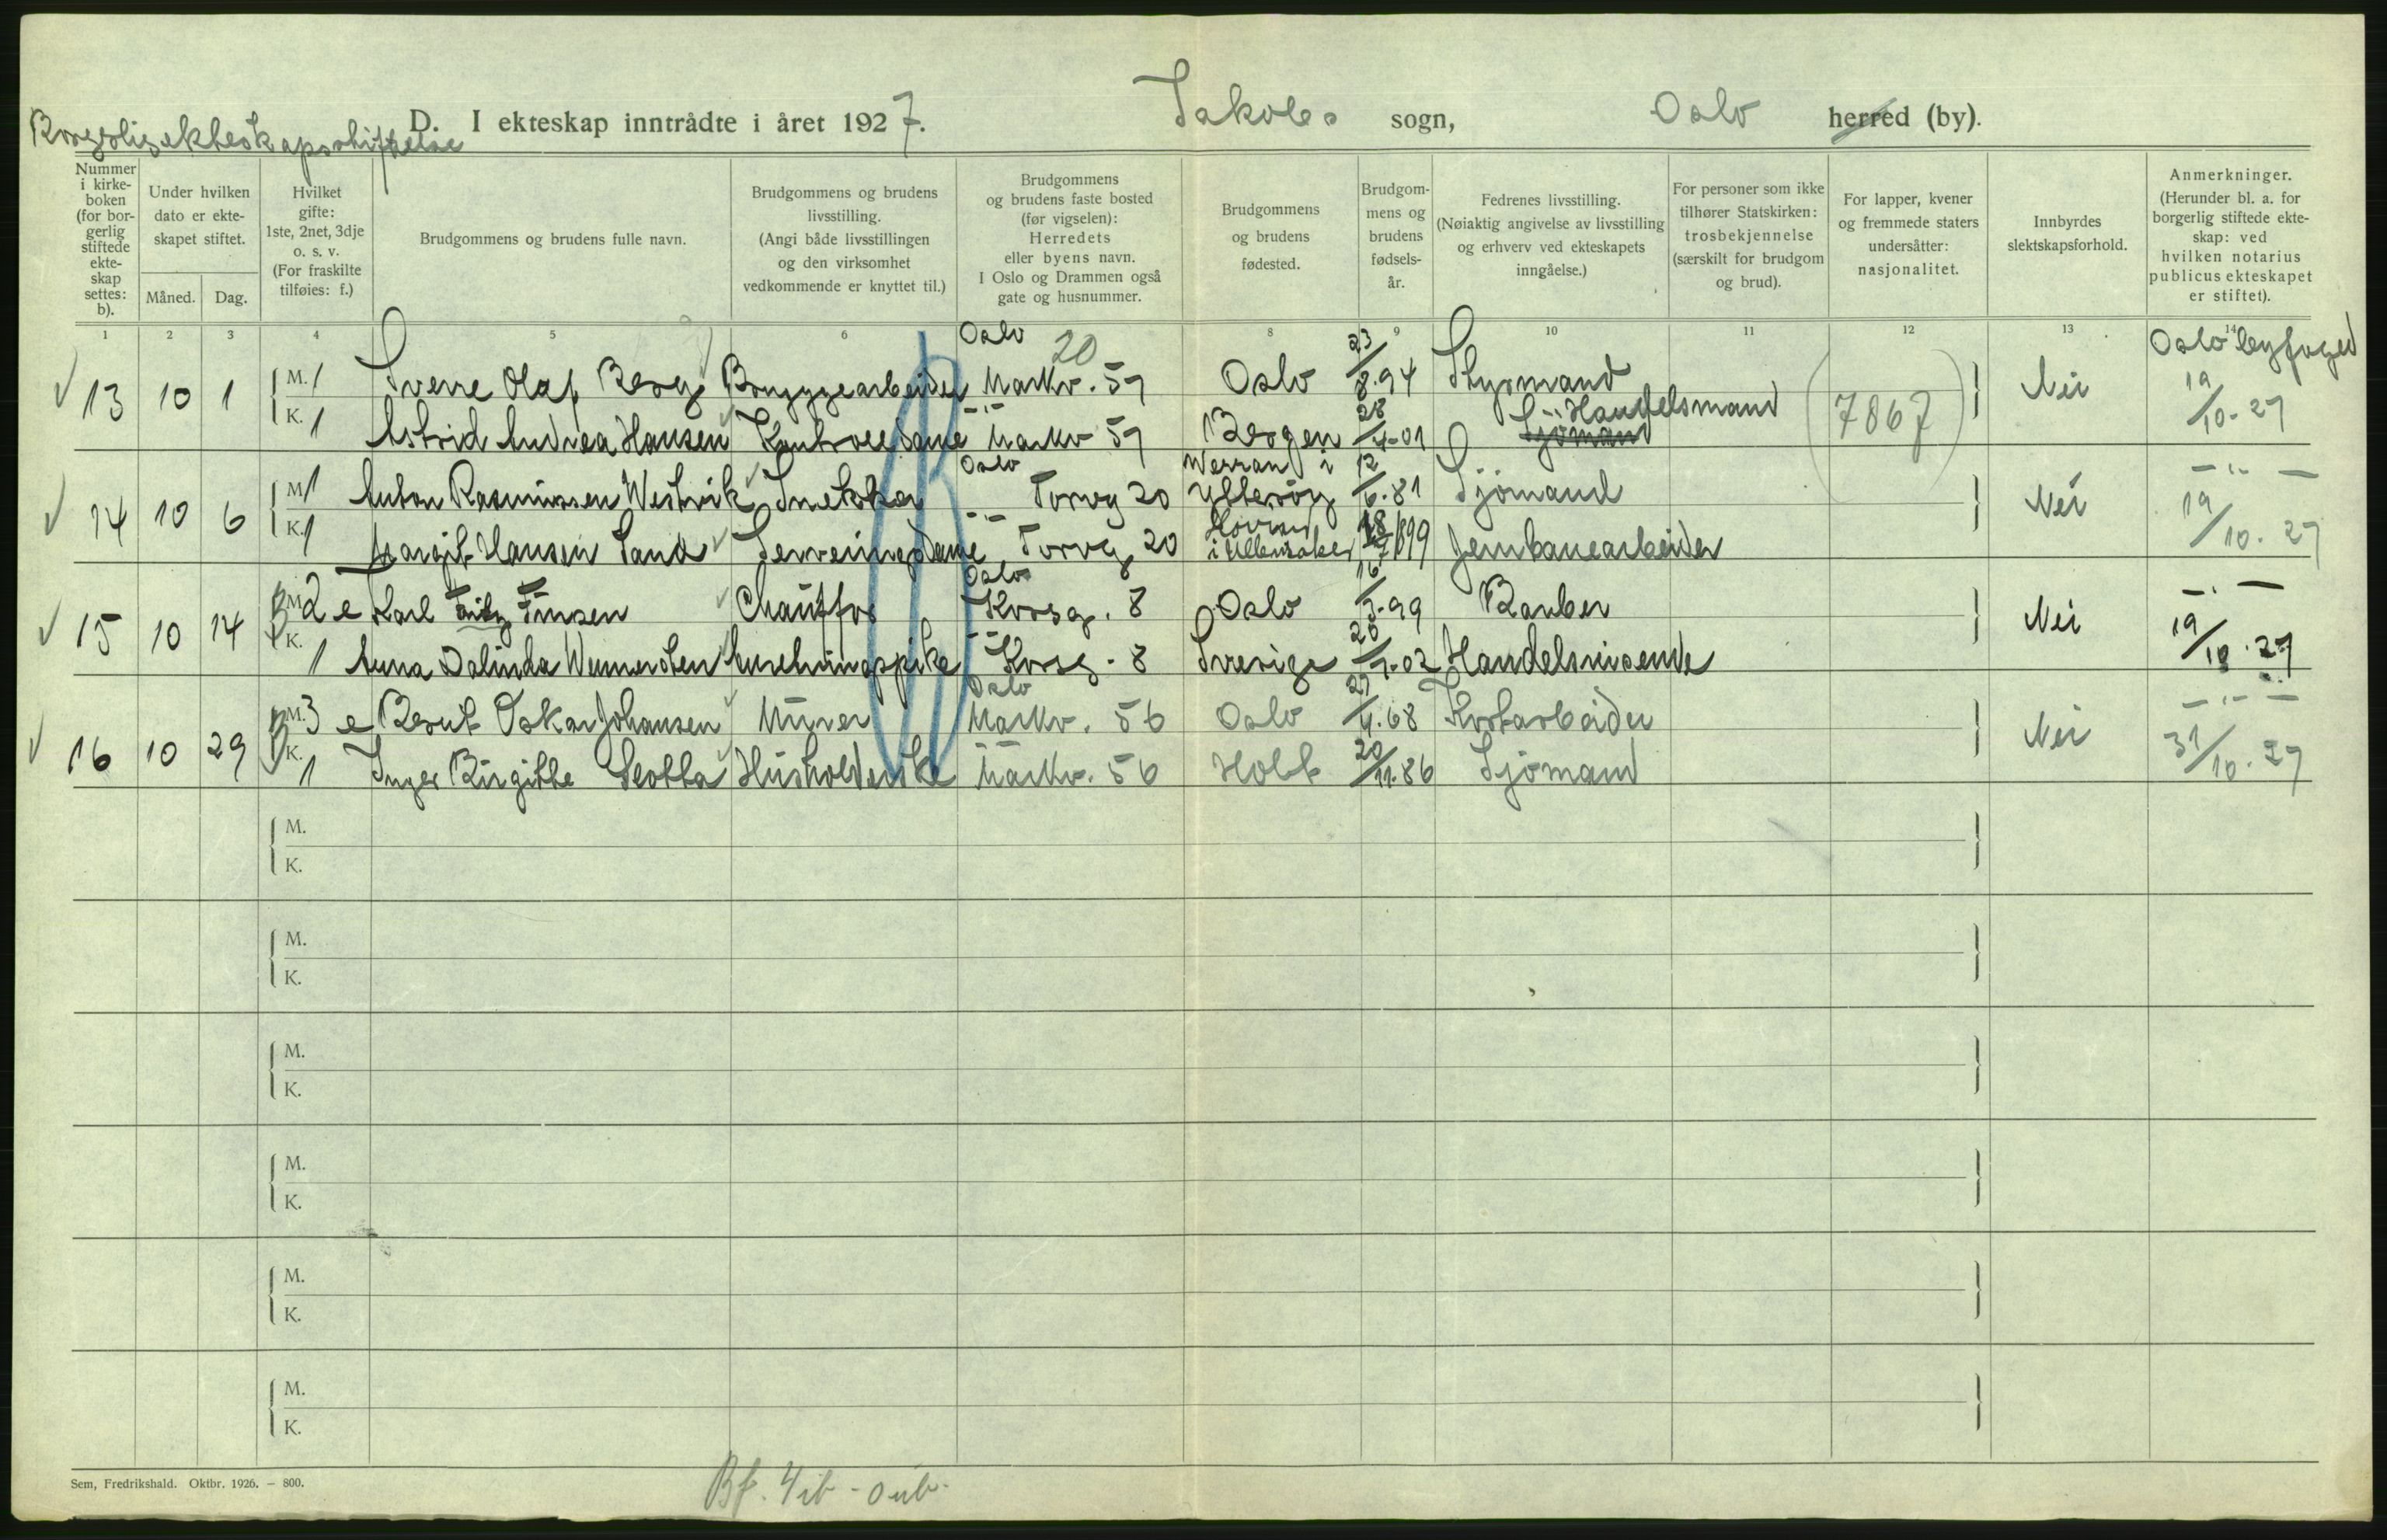 D. I ekteskap inntrådte i året 1927. Jakobs sogn, Oslo herred (by).
Borgerlig ekteskapsstiftelse
Nummer i kirke-boken (for bor-gerlig stiftede ekte-skap settes: b).
Under hvilken dato er ekte-skapet stiftet.
Måned. Dag.
Hvilket gifte: 1ste, 2net, 3dje o. s. v. (For fraskilte tilføies: f.)
Brudgommens og brudens fulle navn.
Brudgommens og brudens livsstilling. (Angi både livsstillingen og den virksomhet vedkommende er knyttet til.)
Brudgommens og brudens faste bosted (før vigselen): Herredets eller byens navn. I Oslo og Drammen også gate og husnummer.
Brudgommens og brudens fødested.
Brudgom-mens og brudens fødsels-år.
Fedrenes livsstilling. (Nøiaktig angivelse av livsstilling og erhverv ved ekteskapets inngåelse.)
For personer som ikke tilhører Statskirken: trosbekjennelse (særskilt for brudgom og brud).
For lapper, kvener og fremmede staters undersåtter: nasjonalitet.
Innbyrdes slektskapsforhold.
Anmerkninger. (Herunder bl. a. for borgerlig stiftede ekte-skap: ved hvilken notarius publicus ekteskapet er stiftet).
1 2 3 4 5 6 8 9 10 11 12 13 14
Oslo 20 Oslo byfoged
13 10 1 M. 1 Sverre Olaf Berg Bryggearbeider Markv. 59 Oslo 23/8.94 Styrmand Nei 19/10.27
K. 1 Astrid Andrea Hansen Kontroldame -"- Markv 59 Bergen 28/4-01 Sjömand Handelsmand (7867)
14 10 6 M. 1 Anton Rasmussen Westvik Snekker Oslo Torvg 20 Werran i Ytteröy 12/6.81 Sjömand Nei -"- 19/10.27
K. 1 Margit Hansen Sand Serveringsdame -"- Torvg 20 i Ullensaker 1899 Jernbanearbeider
15 10 14 M. 2 e Karl Fritz Finsen Chauffør Oslo Korsg. 8 Oslo 16/3-99 Barber Nei -"- 19/10.27
K. 1 Anna Dalinda Wennersten Anretningspike -"- Korsg. 8 Sverige 20/1-02 Handelsreisende
16 10 29 M. 3 e Bernt Oskar Johansen Murer Oslo Markv. 56 Oslo 27/4.68 Kortarbeider Nei -"- 31/10.27
K. 1 Inger Birgitte Leotta Husholderske Markv. 56 Holt 20/11.86 Sjömand
M.
K.
M.
K.
M.
K.
M.
K.
M.
K.
M.
K.
Sem, Fredrikshald. Oktbr. 1926. — 800.
Bf. 4 ib - 0 ub.